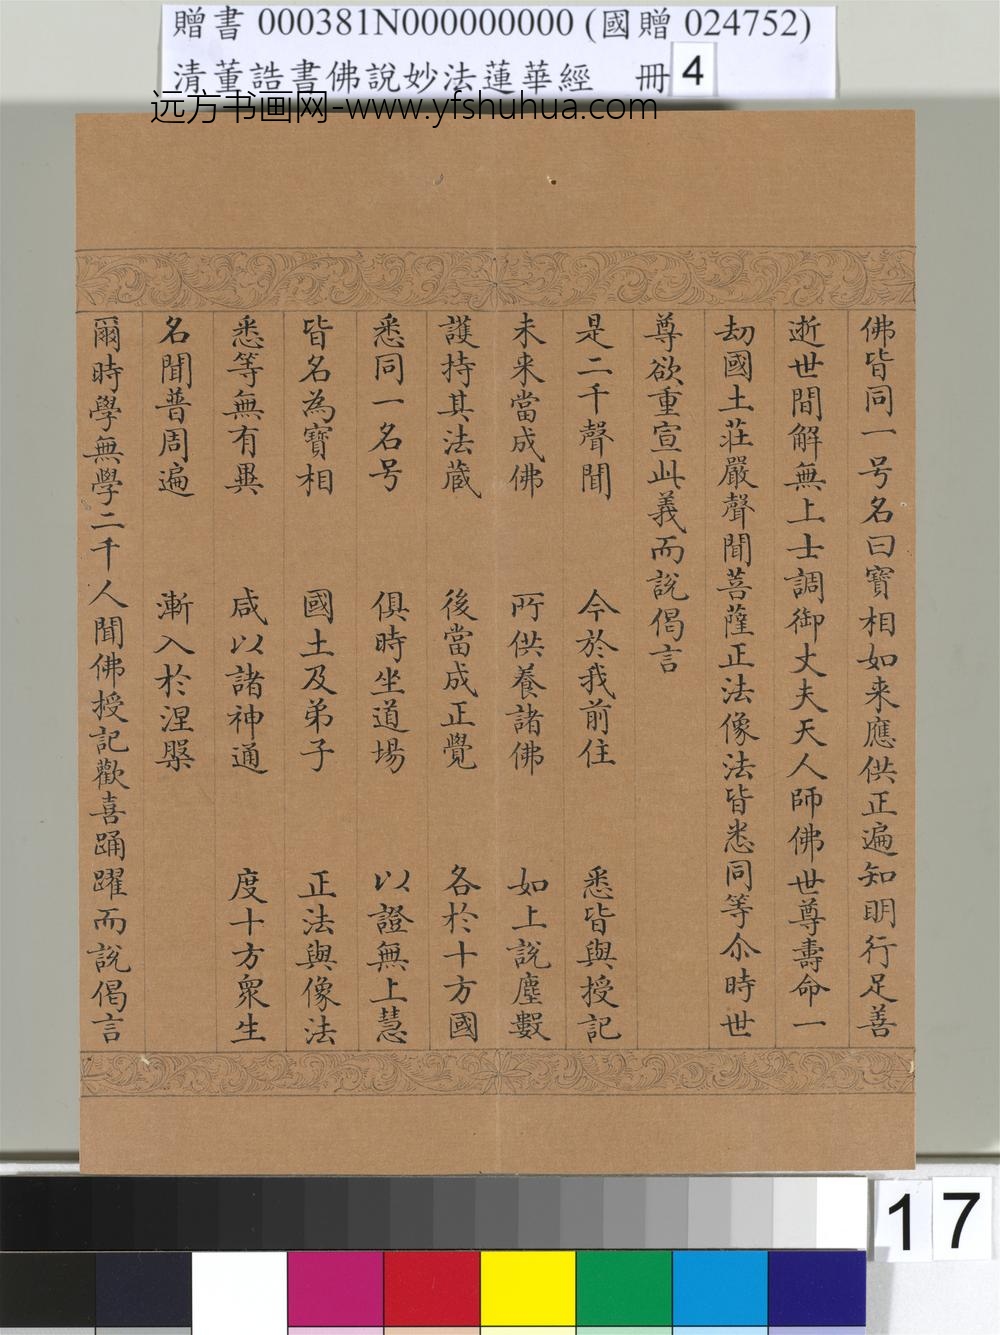 贈書 000381N000000000 (國贈 024752)
清董誥書佛說妙法蓮華經 冊 4
远方书画网-www.yfshuhua.com
佛皆同一号名曰寶相如来應供正遍知明行足善
逝世間解無上士調御丈夫天人師佛世尊壽命一
劫國土莊嚴聲聞菩薩正法像法皆悉同等尒時世
尊欲重宣此義而說偈言
是二千聲聞 今於我前住 悉皆與授記
未来當成佛 所供養諸佛 如上說塵數
護持其法蔵 後當成正覺 各於十方國
悉同一名号 俱時坐道場 以證無上慧
皆名為寶相 國土及弟子 正法與像法
悉等無有異 咸以諸神通 度十方衆生
名聞普周遍 漸入於涅槃
爾時學無學二千人聞佛授記歡喜踊躍而說偈言
17